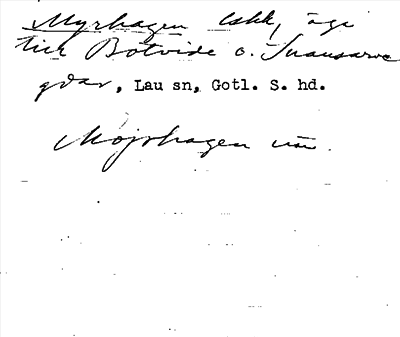 Myrhagen lshk, äge
till Botvide o. Snausarve
gdar, Lau sn, Gotl. S. hd.
Mojrhagen uttu.